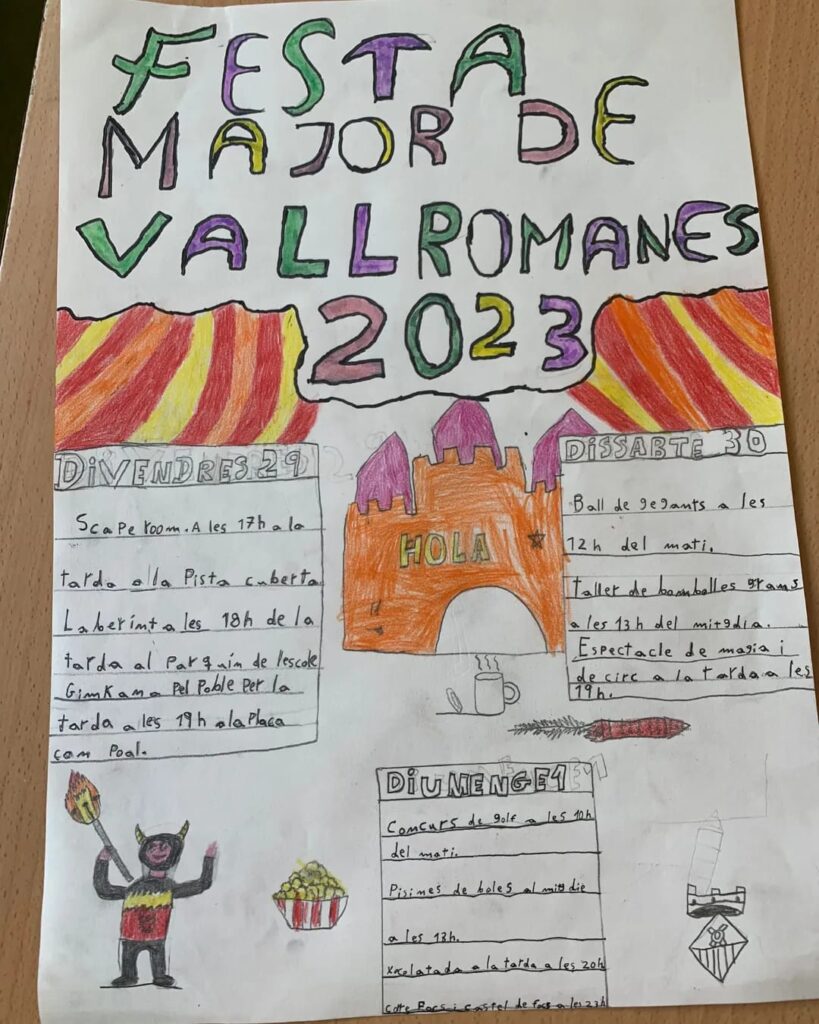 FESTA
MAJOR DE
VALLROMANES
2023
DIVENDRES 29
Scape room. A les 17h a la
tarda a la Pista cuberta
Laberint a les 18h de la
tarda al Parquin de lescole
Gimkama Pel Poble Per la
tarda a les 19h a la Placa
com Poal.
HOLA
DISSABTE 30
Ball de gegants a les
12h del mati.
taller de bamballes grams
a les 13h del mitgdia.
Espectacle de magia i
de circ a la tarda a les
19h.
DIUMENGE 1
Concurs de golf a les 10h
del mati.
Pisines de boles al
a les 13h.
xocolatada a la tarda a les 20h
focs i castel de focs a les 23h